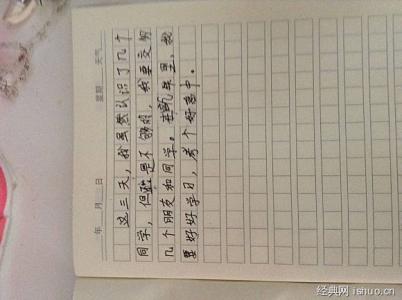 年 月 日 星期 天气
这三天，我虽然认识了几个
同学，但是不够的，我要交
几个朋友和同学。在里，我
要好好学习，考个好高中。
经典网 ishuo.cn